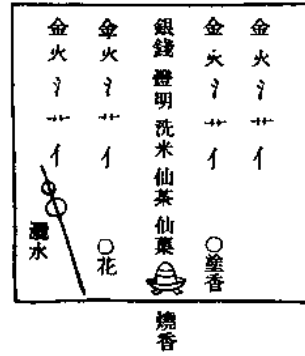 金火氵艹亻
金火氵艹亻
○塗香
銀錢 燈明 洗米 仙茶 仙菓
燒香
金火氵艹亻
○花
金火氵艹亻
灑水